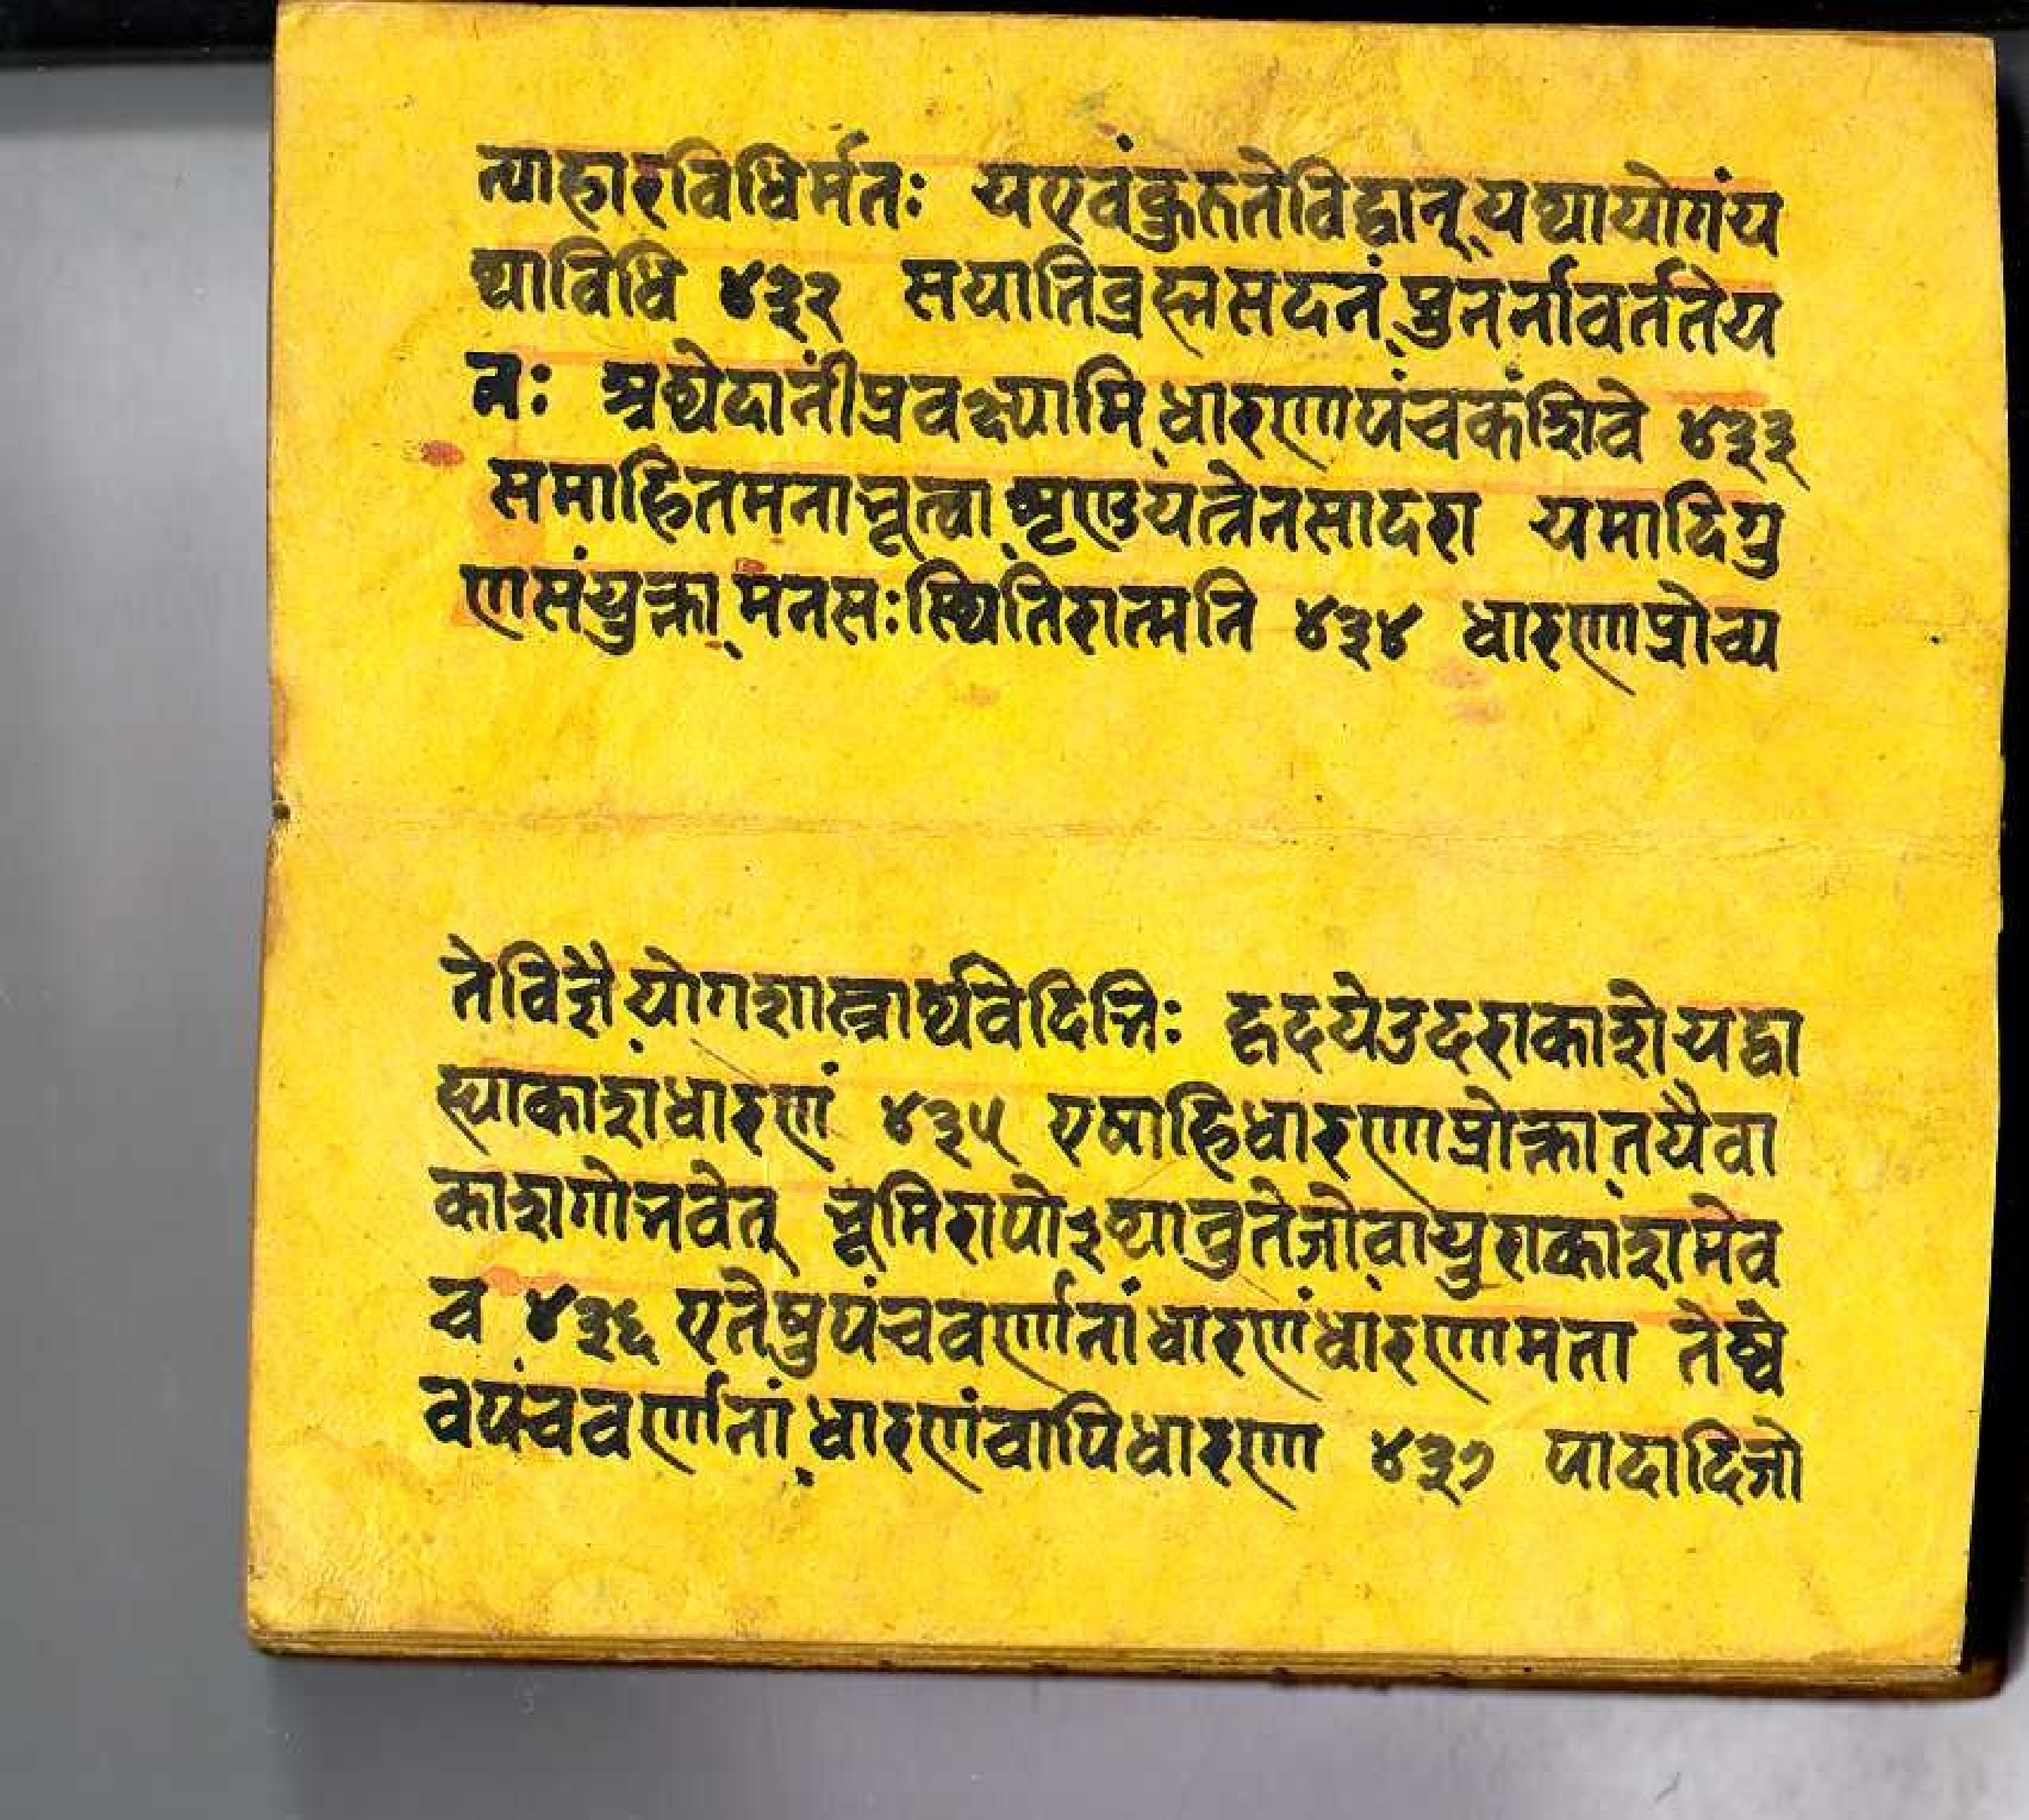 त्याहारविधिर्मतः यएवंकुरुतेविद्वान् यथायोगंय
थाविधि ४३२ सयातिब्रह्मसदनं पुनर्नावर्ततेय
त्रः अथेदानींप्रवक्ष्यामि धारणापंचकंशिवे ४३३
समाहितमनाभूत्वा शृणुयत्नेनसादरा यमादिगु
णसंयुक्ता मनसःस्थितिरात्मनि ४३४ धारणाप्रोच्य
तेविज्ञै योगशास्त्रार्थवेदिभिः हृदयेउदराकाशे यद्वा
ह्याकाशंधारणां ४३५ एषाहिधारणाप्रोक्ता तथैवा
काशगोभवेत् भूमिरापोस्थातु तेजोवायुराकाशमेव
च ४३६ एतेषुपंचवर्णानां धारणांधारणामता तेष्वे
वपंचवर्णानां धारणंवापिधारणा ४३७ पादादिजा